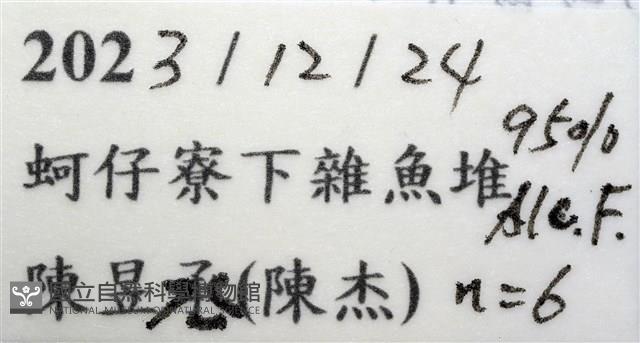 2023/12/24
95%
蚵仔寮下雜魚堆
Alc.F.
陳昇(陳杰) n=6
國立自然科學博物館
NATIONAL MUSEUM OF NATURAL SCIENCE